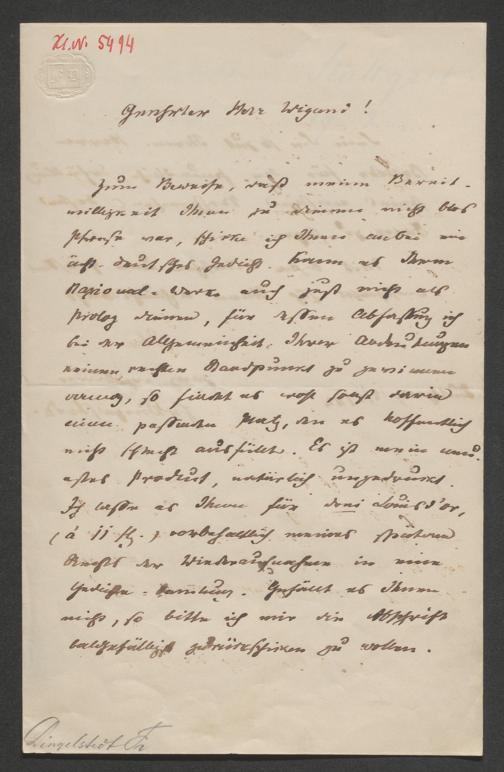 XI.N. 5494
Geehrter Herr Wigand!
Zum Beweise, daß meine Bereit-
willigkeit Ihnen zu dienen nicht blos
Phrase war, schicke ich Ihnen anbei ein
ächt-deutsches Gedicht. Kann es Ihrem
National-Werke auch just nicht als
Prolog dienen, für dessen Abfassung ich
bei der Allgemeinheit Ihrer Andeutungen
keinen rechten Standpunct zu gewinnen
, so findet es wohl sonst darin
einen passenden Platz, den es hoffentlich
nicht schlecht ausfüllt. Es ist mein neu-
estes Product, natürlich ungedruckt.
Ich lasse es Ihnen für drei Louisd'or,
(à 11 fl.) vorbehaltlich meines spätern
Rechts der Wiederaufnahme in eine
Gedichte-Sammlung. Gefällt es Ihnen
nicht, so bitte ich mir die Abschrift
baldgefälligst zurückschicken zu wollen.
Dingelstedt Fr